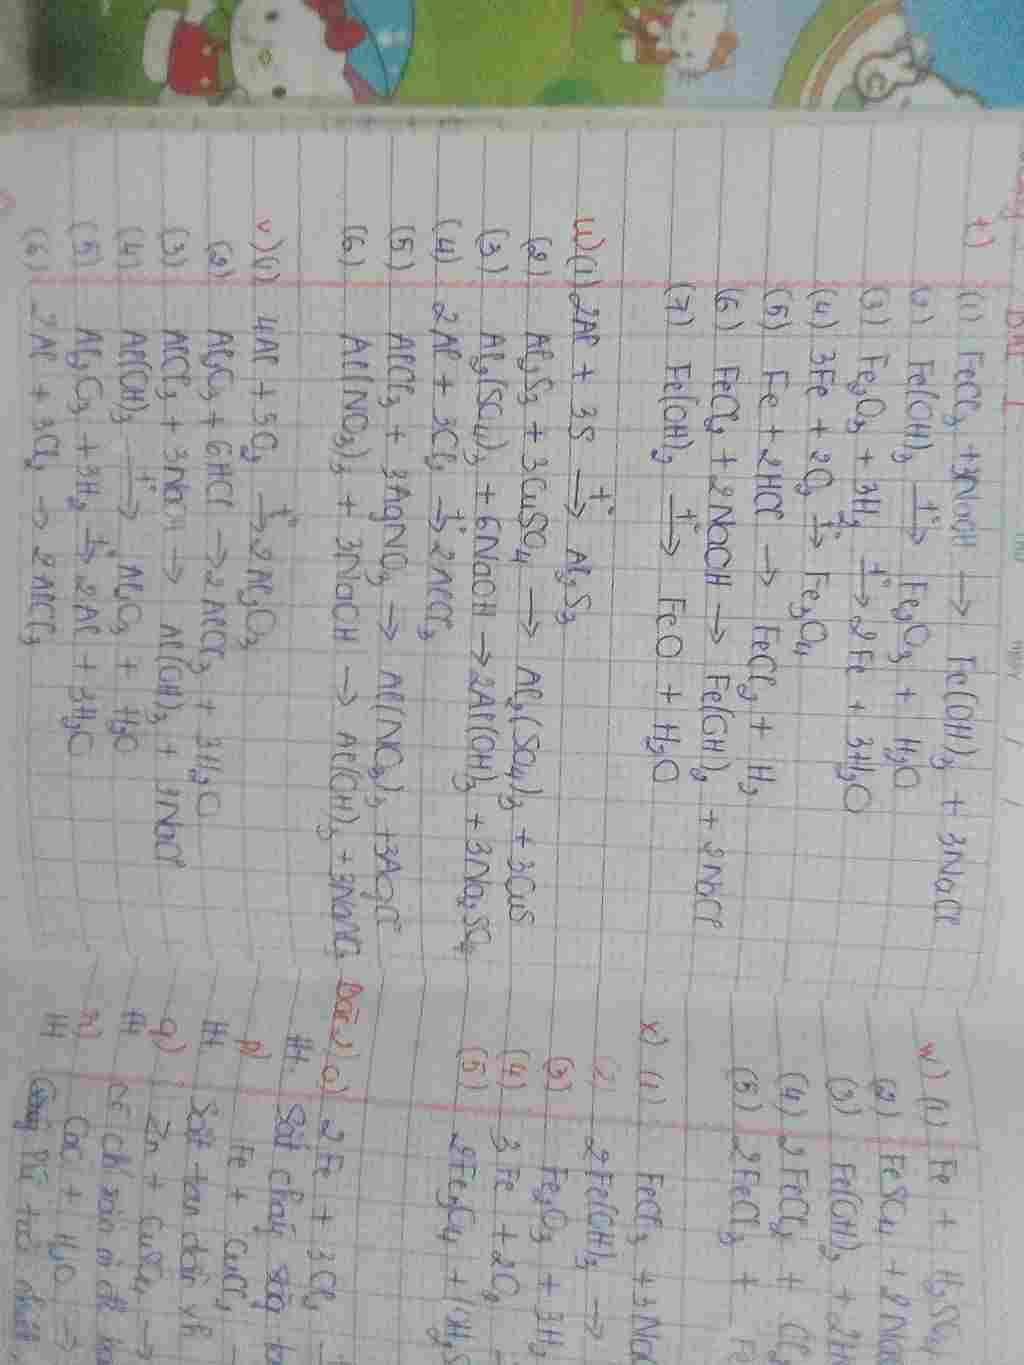 BÀI 1
t)
(1) FeCl₃ + 3NaOH → Fe(OH)₃ + 3NaCl
(2) Fe(OH)₃ t°→ Fe₂O₃ + H₂O
(3) Fe₂O₃ + 3H₂ t°→ 2Fe + 3H₂O
(4) 3Fe + 2O₂ t°→ Fe₃O₄
(5) Fe + 2HCl → FeCl₂ + H₂
(6) FeCl₂ + 2NaOH → Fe(OH)₂ + 2NaCl
(7) Fe(OH)₂ t°→ FeO + H₂O
u) (1) 2Al + 3S t°→ Al₂S₃
(2) Al₂S₃ + 3CuSO₄ → Al₂(SO₄)₃ + 3CuS
(3) Al₂(SO₄)₃ + 6NaOH → 2Al(OH)₃ + 3Na₂SO₄
(4) 2Al + 3Cl₂ t°→ 2AlCl₃
(5) AlCl₃ + 3AgNO₃ → Al(NO₃)₃ + 3AgCl
(6) Al(NO₃)₃ + 3NaOH → Al(OH)₃ + 3NaNO₃
v) (1) 4Al + 3O₂ t°→ 2Al₂O₃
(2) Al₂O₃ + 6HCl → 2AlCl₃ + 3H₂O
(3) AlCl₃ + 3NaOH → Al(OH)₃ + 3NaCl
(4) Al(OH)₃ t°→ Al₂O₃ + H₂O
(5) Al₂O₃ + 3H₂ t°→ 2Al + 3H₂O
(6) 2Al + 3Cl₂ → 2AlCl₃
w) (1) Fe + H₂SO₄
(2) FeSO₄ + 2Na
(3) Fe(OH)₂ + 2H
(4) 2FeCl₂ + Cl₂
(5) 2FeCl₃ + Fe
x) (1) FeCl₃ + 3Na
(2) 2Fe(OH)₃ →
(3) Fe₂O₃ + 3H₂
(4) 3Fe + 2O₂
(5) 2Fe₃O₄ + 10H₂S
Bài 2) o) 2Fe + 3Cl₂
Ht: Sắt cháy sáng
p) Fe + CuCl₂
Ht: Sắt tan dần
q) Zn + CuSO₄ →
Ht: Có chất rắn
r) CaO + H₂O →
Ht